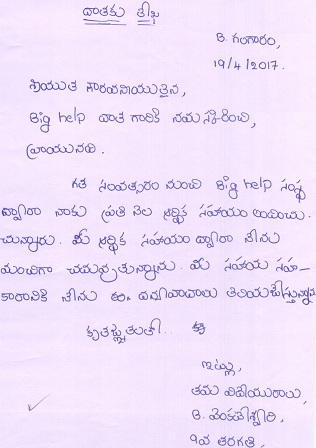 దాతకు లేఖ
B. గంగారం,
19/4/2017.
గౌరవనీయుతైన,
Big help దాత గారికి నమస్కరించి,
వ్రాయునది.
గత సంవత్సరం నుంచి Big help సంస్థ
ద్వారా నాకు ప్రతి నెల ఆర్థిక సహాయం అందించు
చున్నారు. మీ ఆర్థిక సహాయం ద్వారా నేను
మంచిగా చదువుతున్నాను. మీ సహాయ సహ-
కారానికి నేను ధన్యవాదాలు తెలియజేస్తున్నాను
కృతజ్ఞతతో..
ఇట్లు,
తమ విధేయురాలు,
B. వెంకటేశ్వరి,
9వ తరగతి,